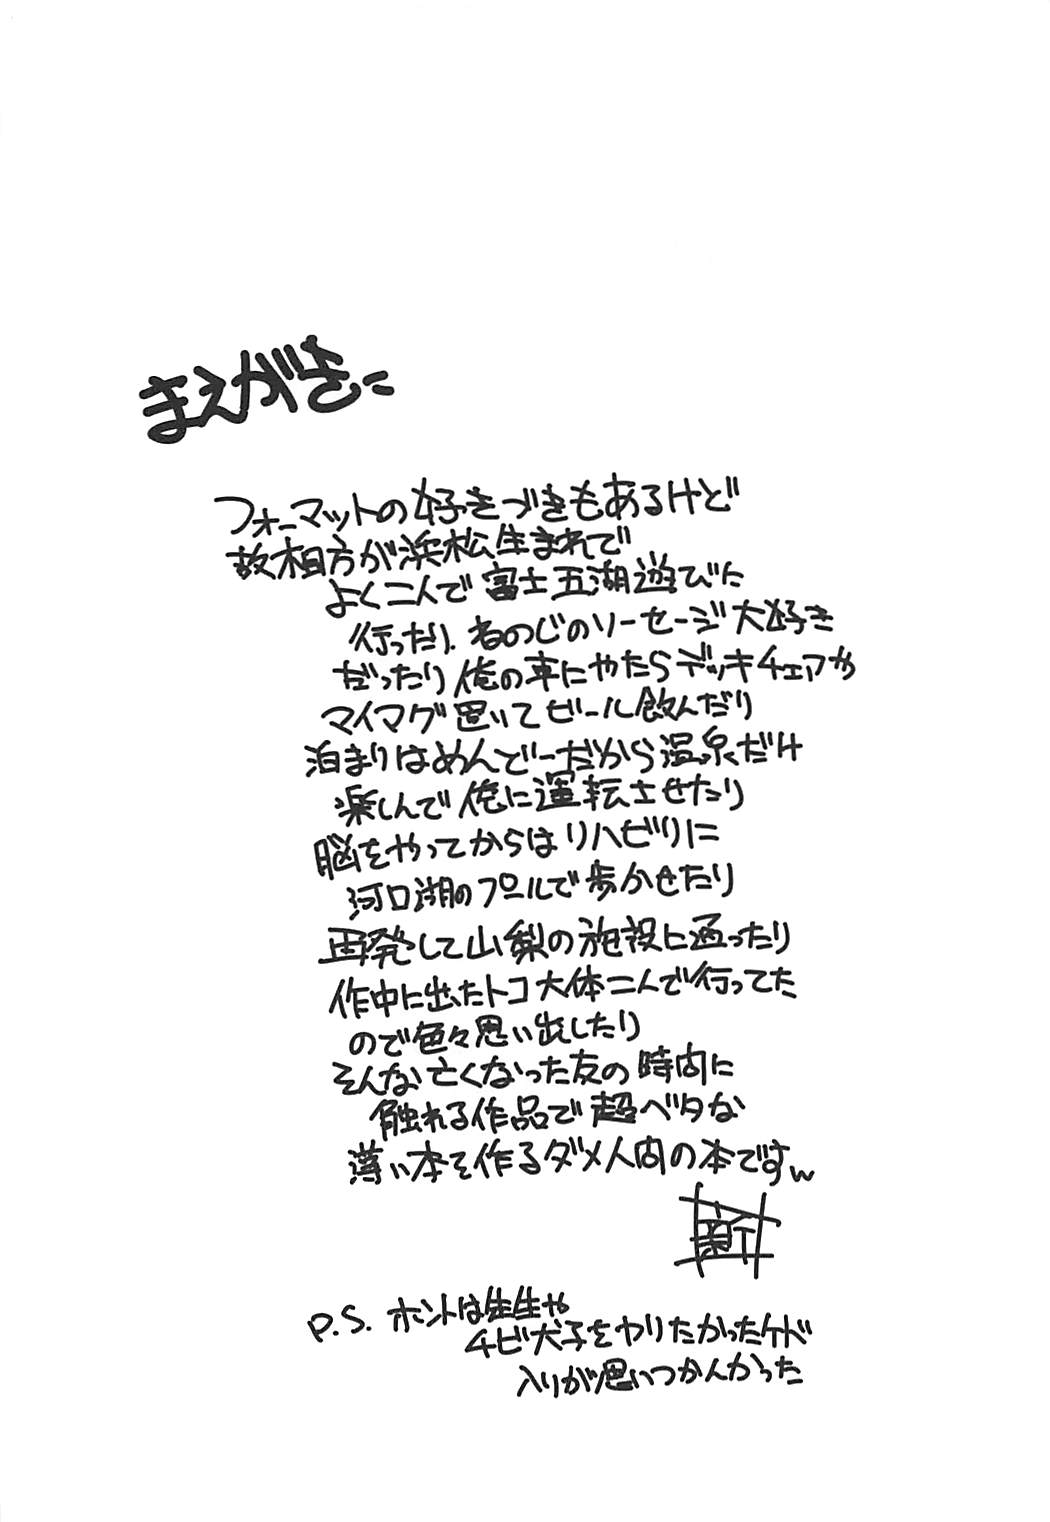 まえがきニ
フォーマットの好きづきもあるけど
故相方が浜松生まれで
よく二人で富士五湖遊びに
行ったり、名のじのソーセージ大好き
だったり俺の車にやたらデッキチェアか
マイマグ置いてビール飲んだり
泊まりはめんどーだから温泉だけ
楽しんで俺に運転させたり
脳をやってからはリハビリに
河口湖のプールで歩かせたり
再発して山梨の施設に通ったり
作中に出たトコ大体二人で行ってた
ので色々思い出したり
そんな亡くなった友の時間に
触れる作品で超ベタな
薄い本を作るダメ人間の本ですw
P.S. ホントは先生や
チビ犬子をやりたかったケド
入りが思いつかんかった